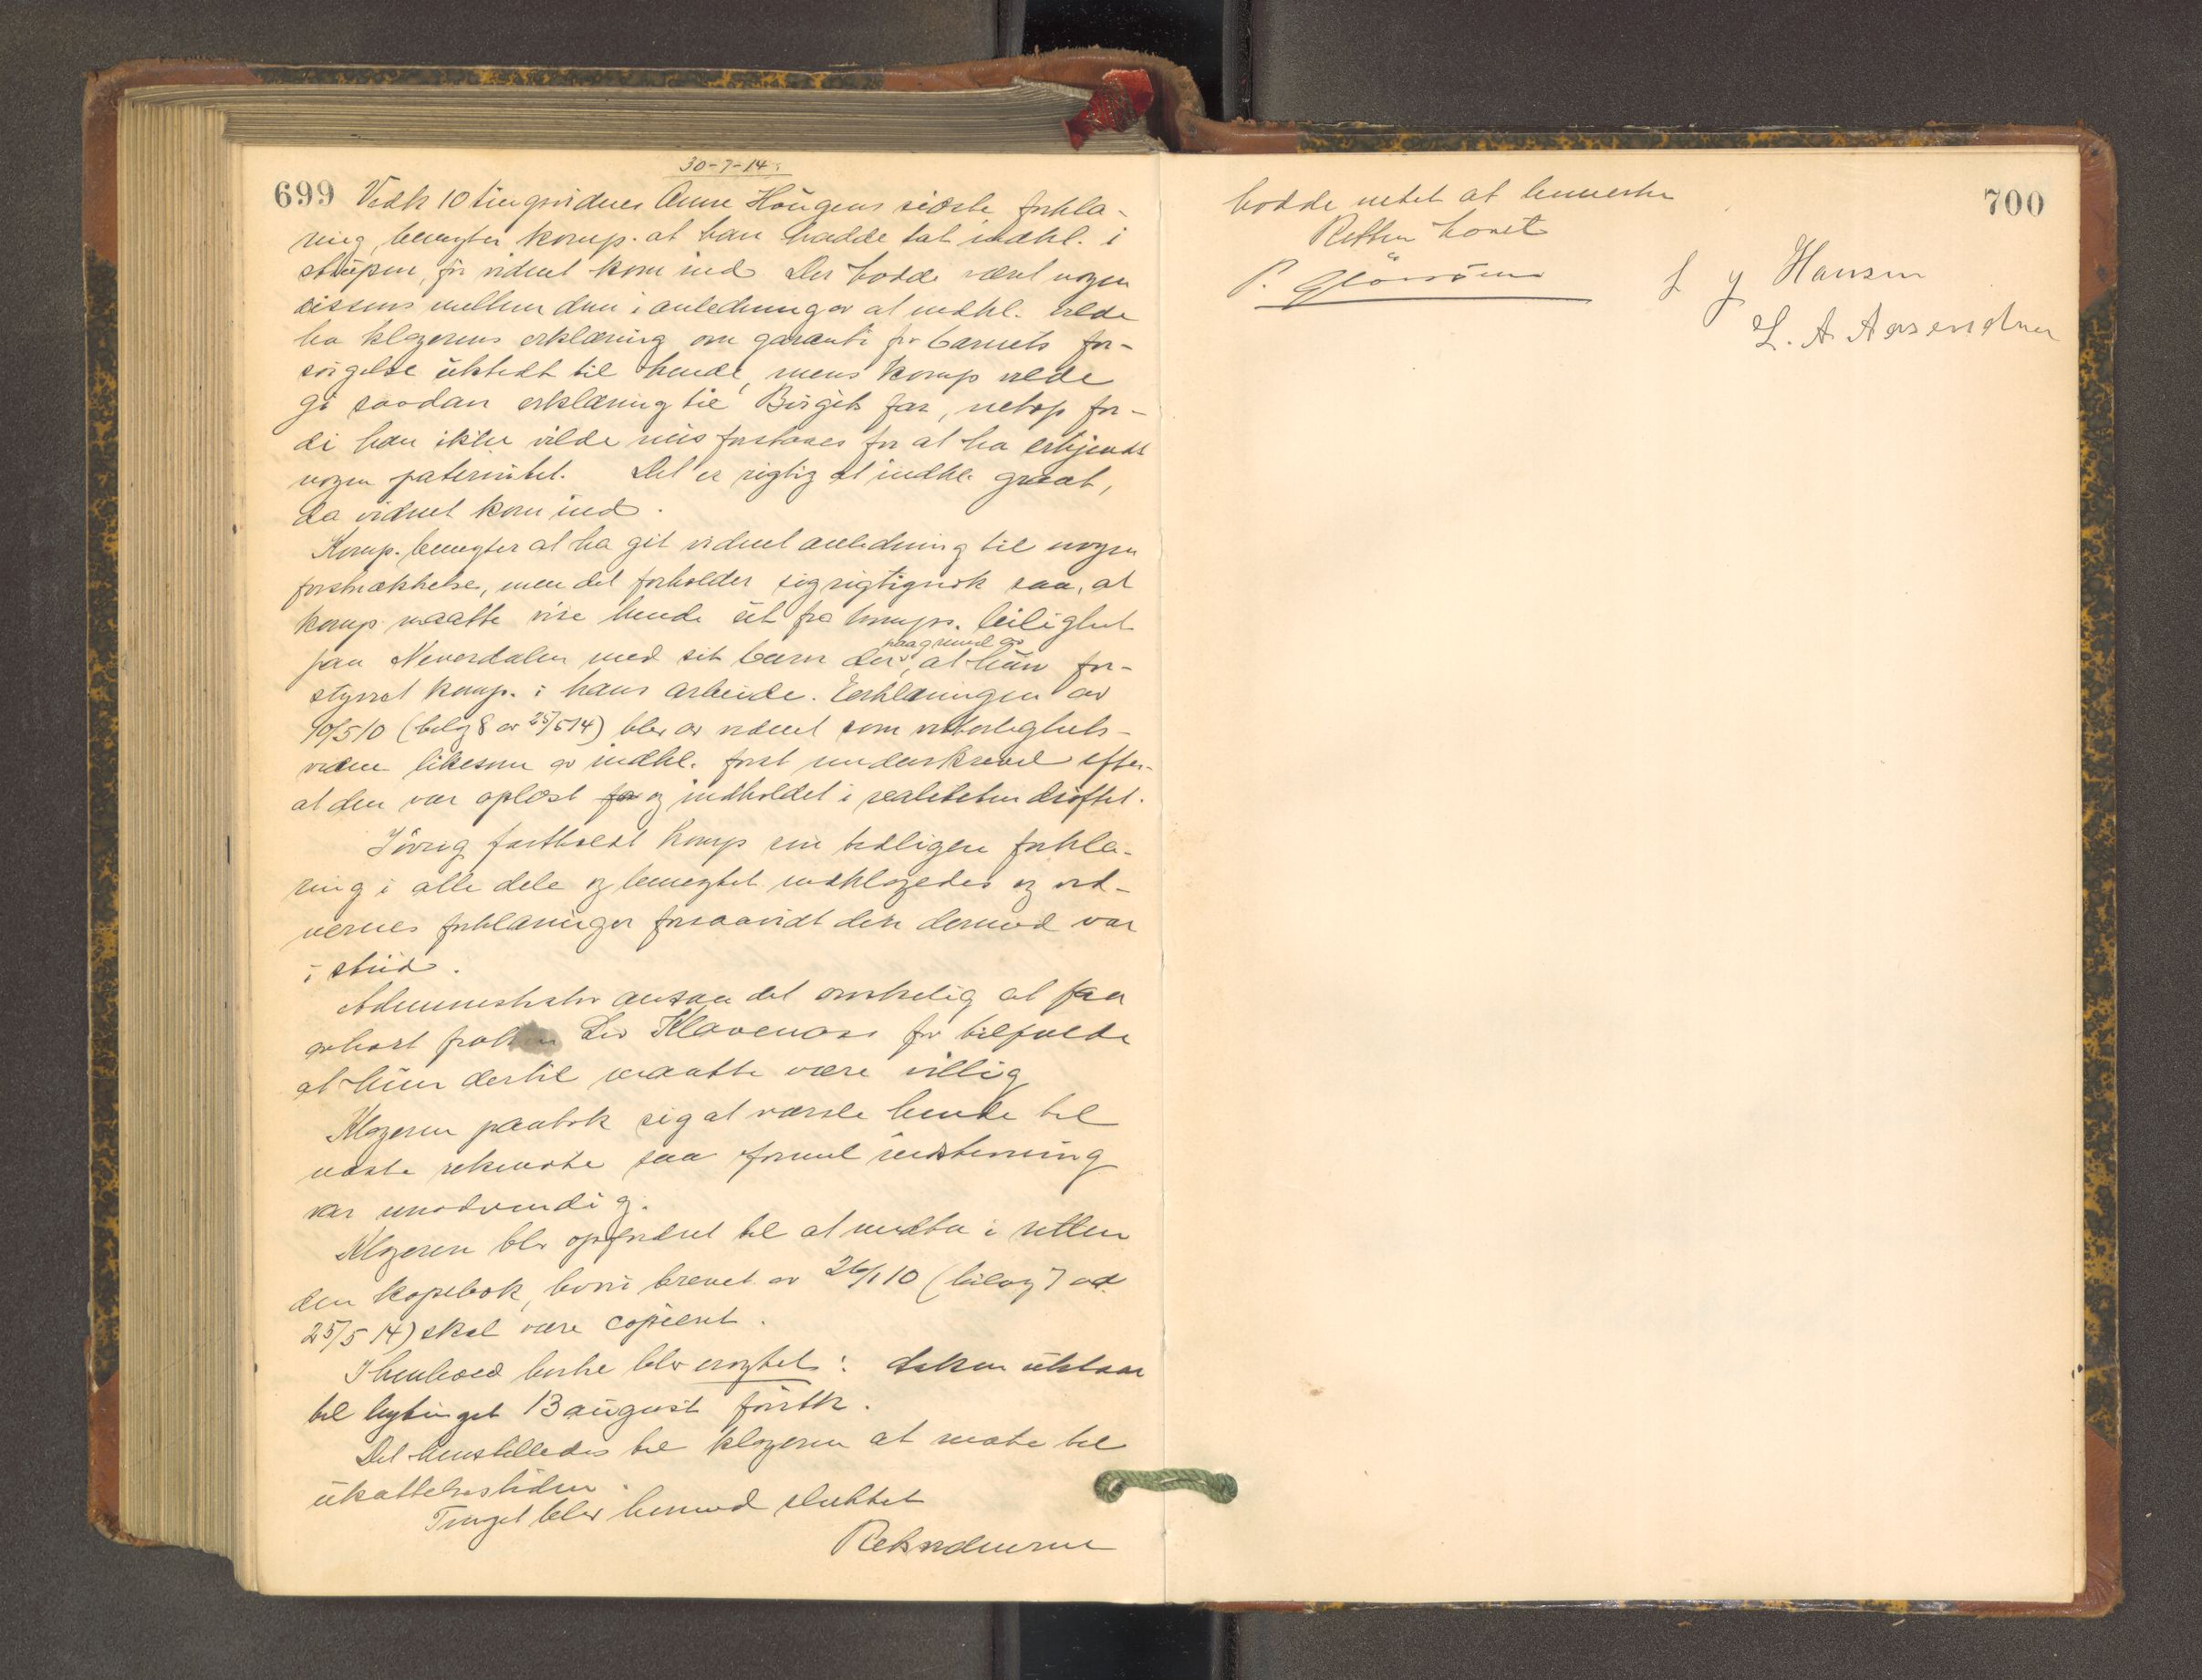 30-7-14.
699 Vedk 10 tingsvidnes Anne Haugens sidste forkla-
ring, benegter komp. at han hadde tat indkl. i
strupen, før vidnet kom ind. Der hadde været nogen
dissens mellem dem i anledning av at indkl. vilde
ha klagerens erklæring om garanti for barnets for-
sørgelse utstedt til hende, mens komp vilde
gi saadan erklæring til Birgits far, netop for-
di han ikke vilde misforstaaes for at ha erkjendt
nogen paternitet. Det er rigtig at indkl. graat,
da vidnet kom ind.
Komp. benegter at ha git vidnet anledning til nogen
forskrækkelse, men det forholder sig rigtignok saa, at
komp maatte vise hende ut fra komps. leilighet
paa Neverdalen med sit barn der, paa grund av at hun for-
styrret komp. i hans arbeide. Erklæringen av
10/5 10 (bilag 8 av 25/5 14) blev av vidnet som vitterligheds-
vidne likesom av indkl. først underskrevet efter-
at den var oplæst og indholdet i realiteten drøftet.
Iøvrig fastholdt komp sin tidligere forkla-
ring i alle dele og benegtet indklagedes og vid-
nernes forklaringer forsaavidt disse dermed var
i strid.
Administrator ansaa det ønskelig at faa
avhørt frøken Liv Klaveness for tilfælde
at hun dertil maatte være villig
Klageren paatok sig at varsle hende til
næste retsmøte saa formel indstevning
var unødvendig.
Klageren blev opfordret til at medta i retten
den kopibok, hvori brevet av 26/1 10 (bilag 7 av
25/5 14) skal være copieret.
I henhold hertil blev eragtet: Saken utstaar
til bytinget 13 august førstk.
Det henstilledes til klageren at møte til
utsættelsestiden.
Tinget blev hermed sluttet
Retsvidnerne
hadde intet at bemerke
700
Retten hævet
P. Glørsöm
L A Aasendner
Hansen